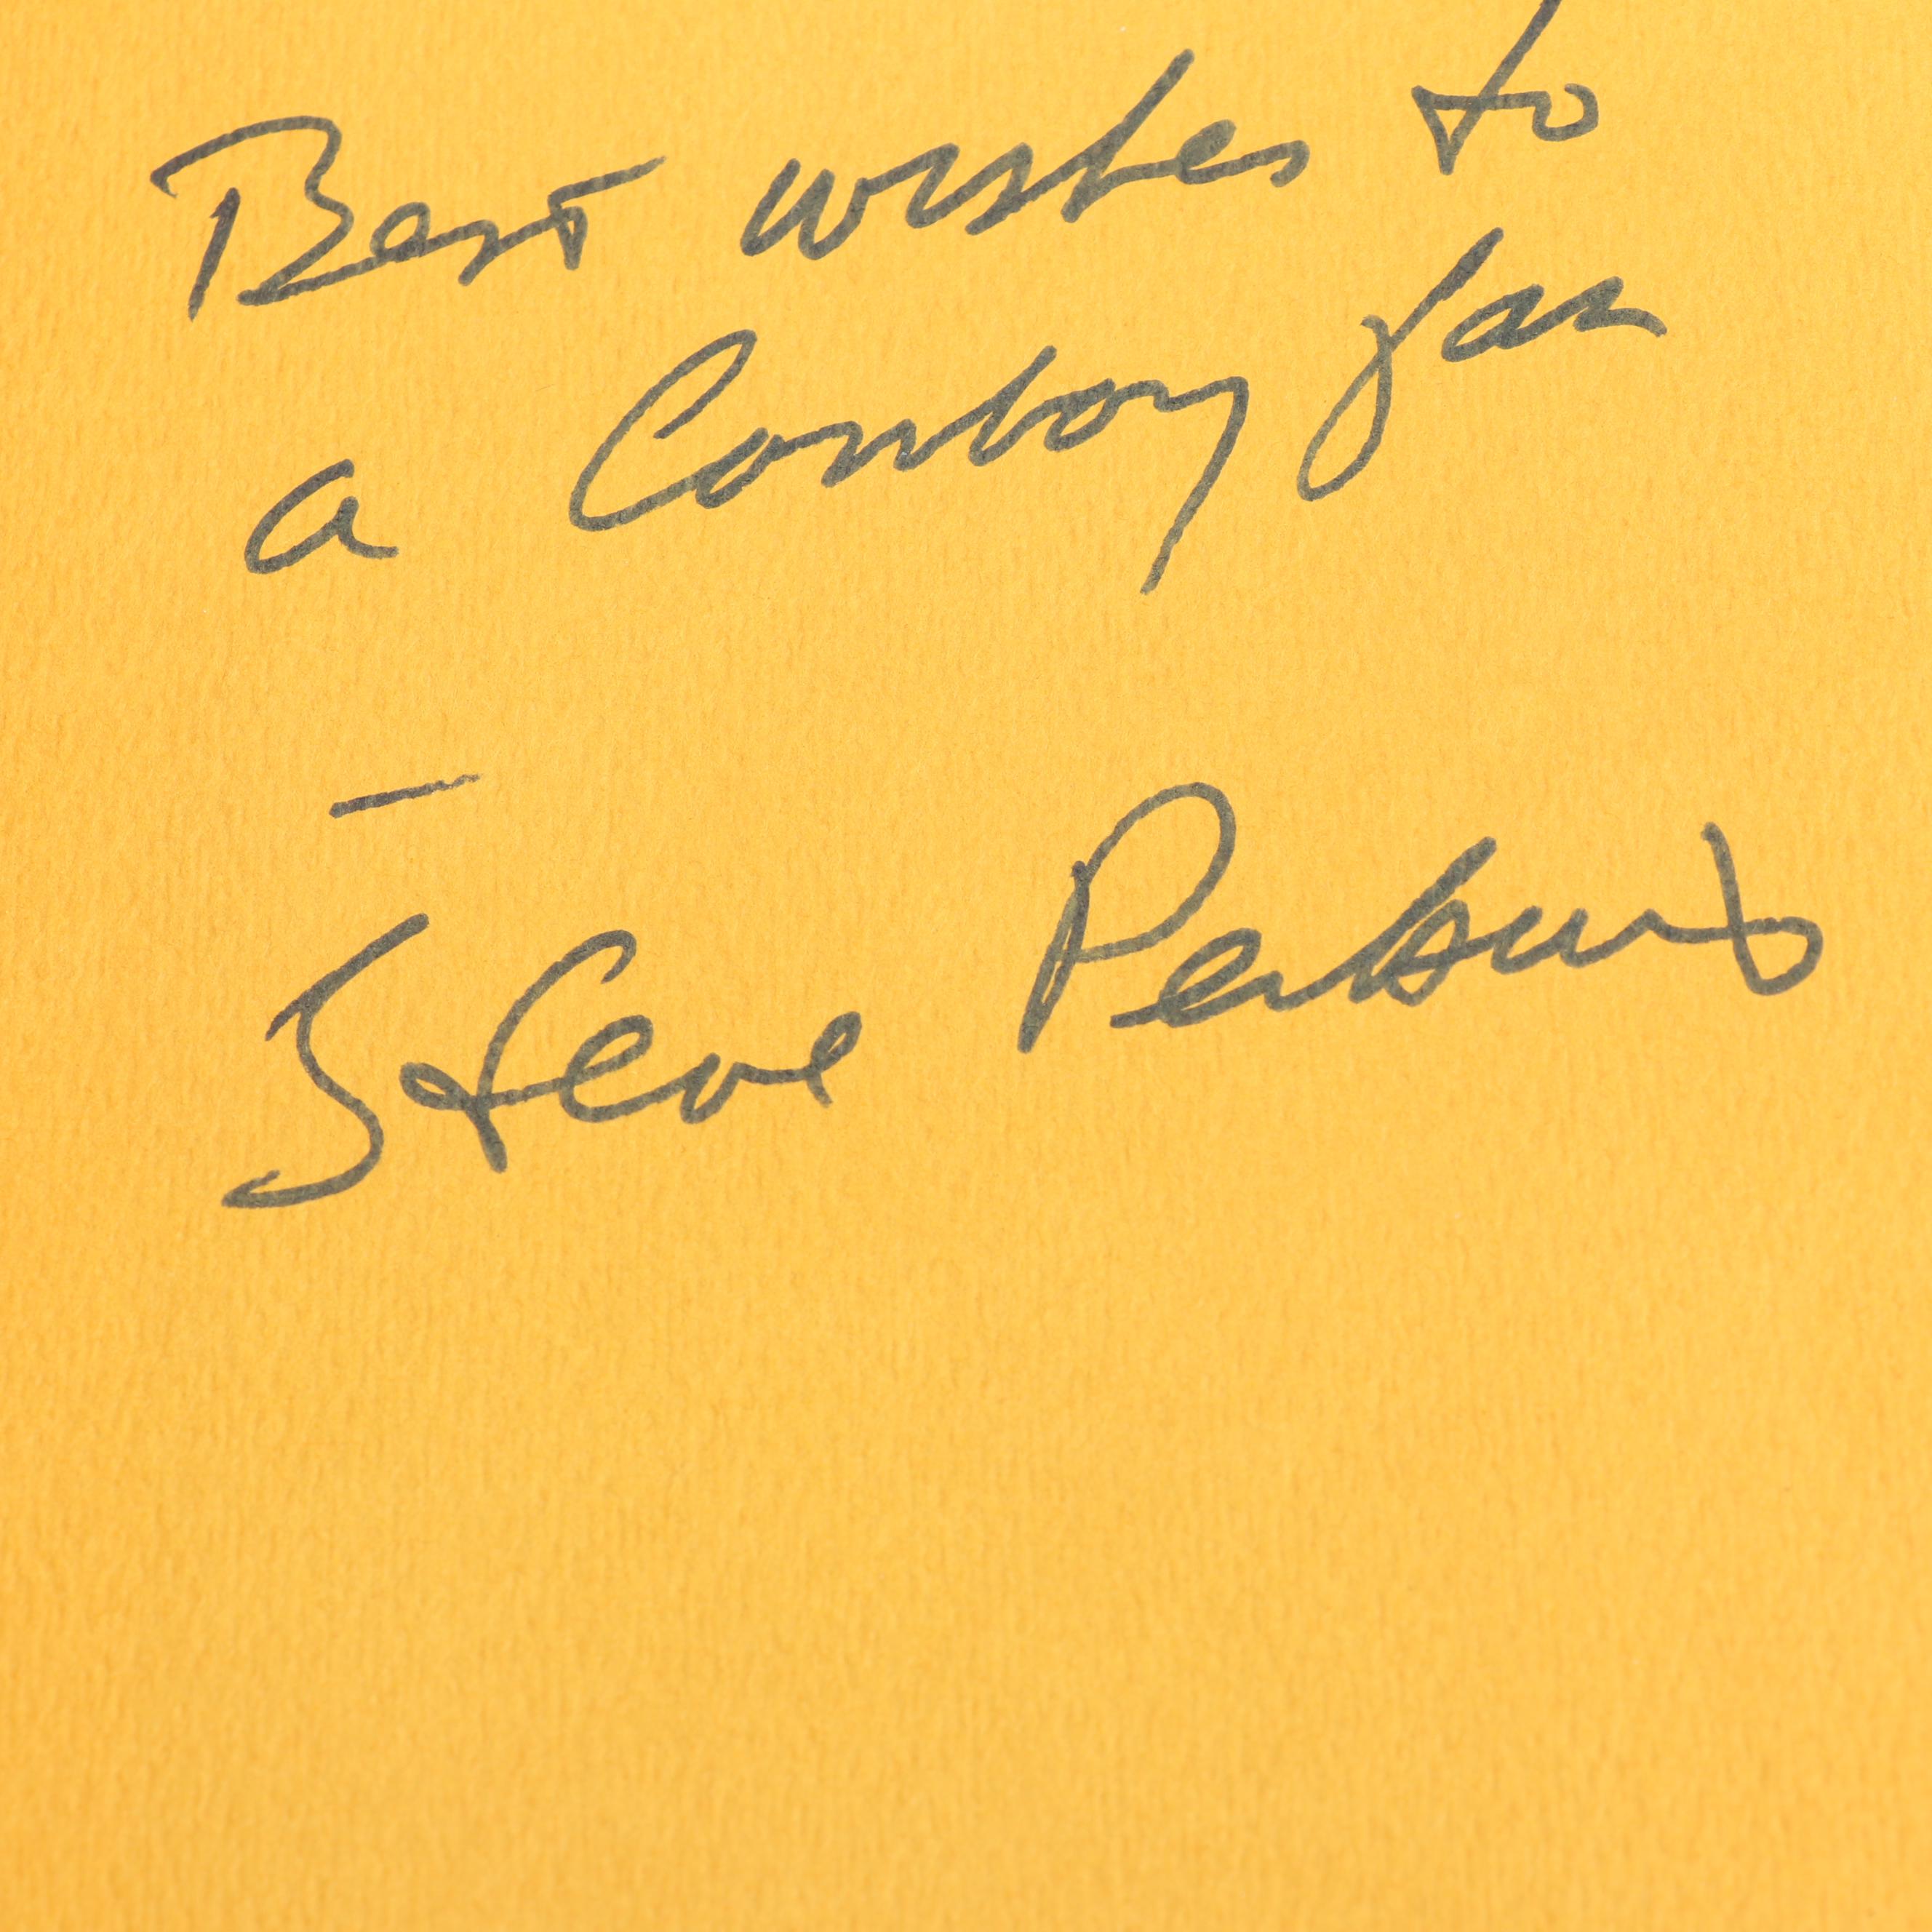 Best wishes to
a Cowboy fan
—
Steve Perkins